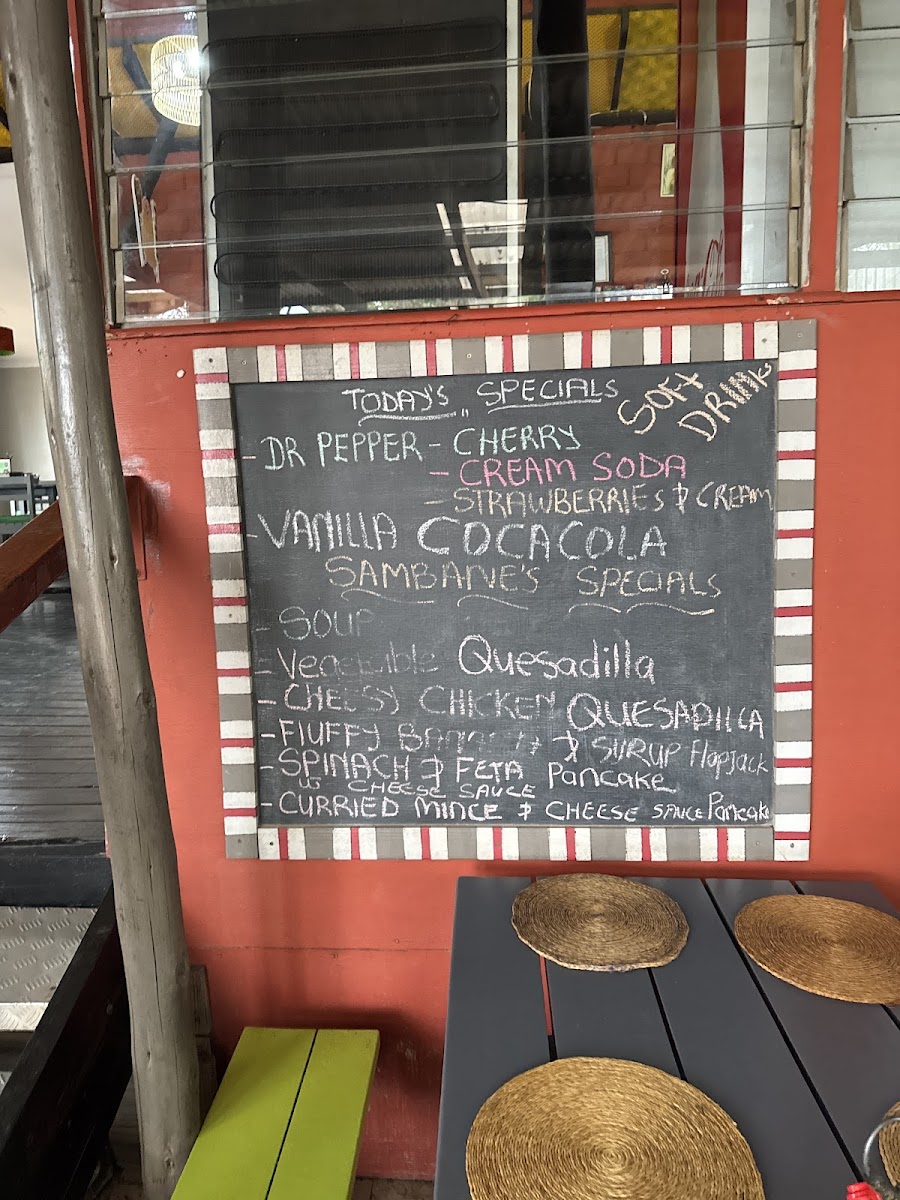 TODAY'S SPECIALS
SOFT
DRINK
- DR PEPPER - CHERRY
- CREAM SODA
- STRAWBERRIES & CREAM
- VANILLA COCACOLA
SAMBANE'S SPECIALS
- SOUP
- Vegetable Quesadilla
- CHEESY CHICKEN QUESADILLA
- FlUFFY & SYRUP FlapJack
- SPINACH & FETA Pancake
CHEESE SAUCE
- CURRIED MINCE & CHEESE SAUCE Pancake